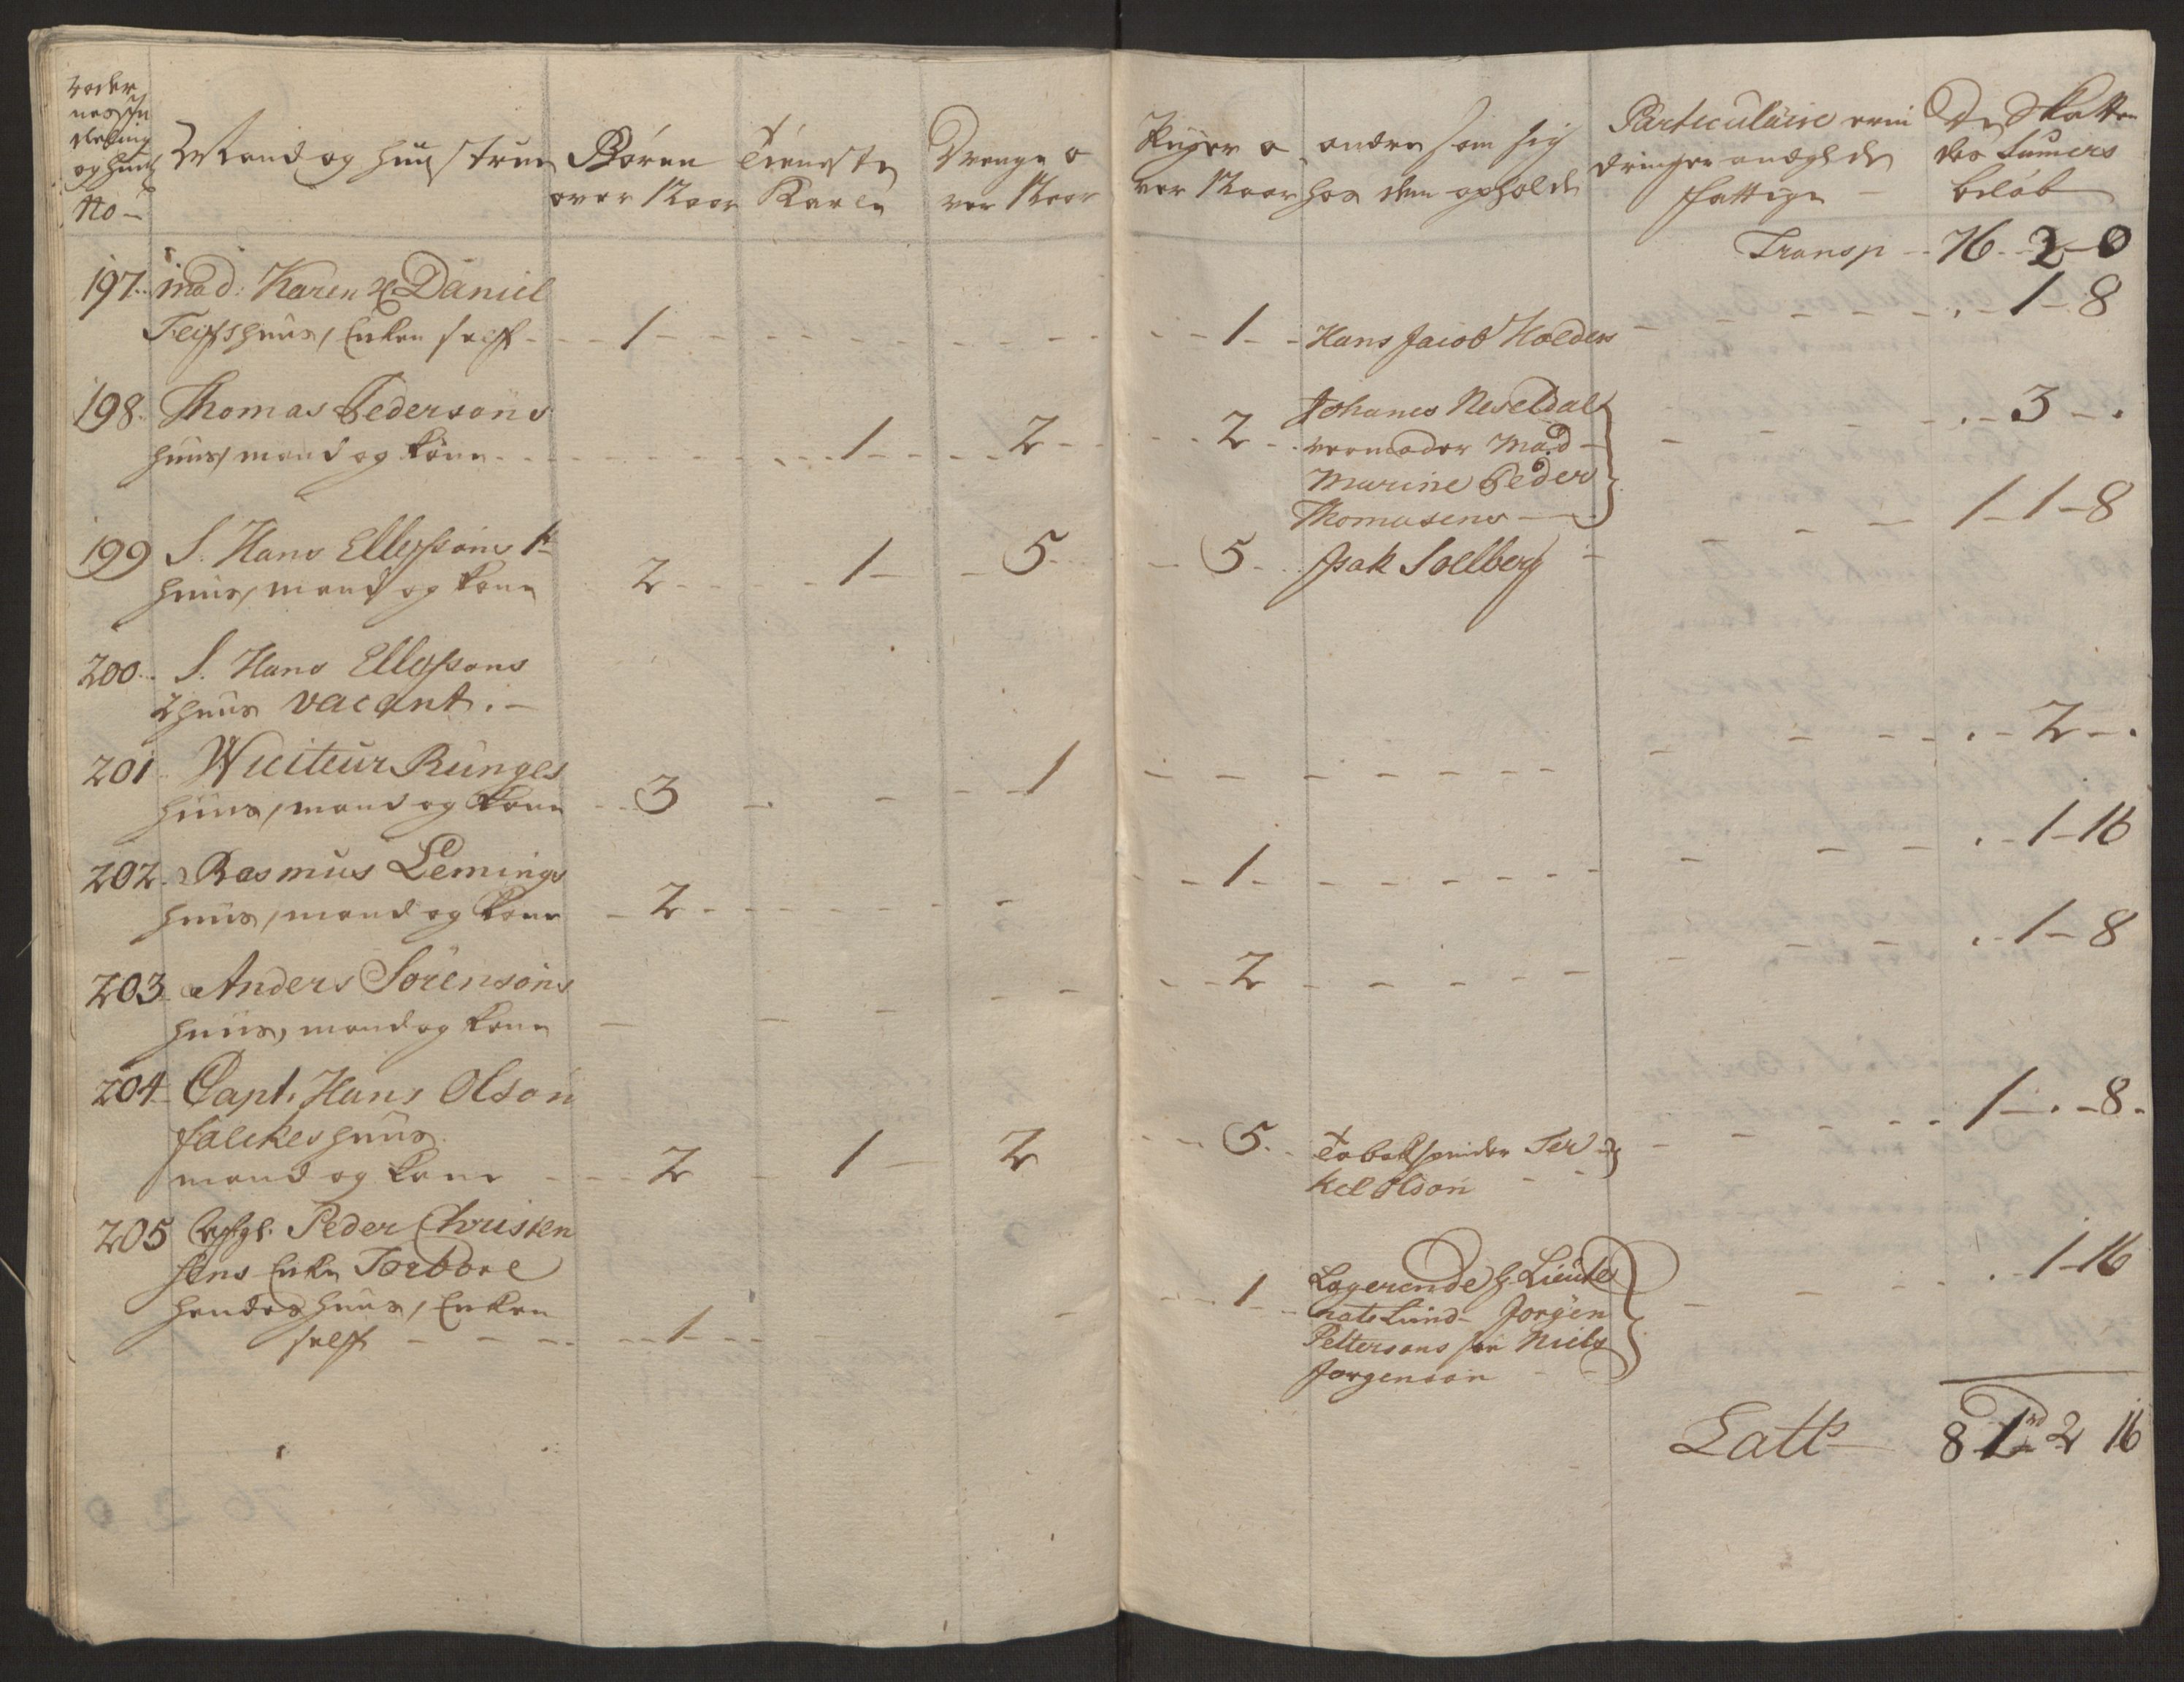 No
Mand og Huustrue
Børn
over 12 aar
Tieneste
Karle
Drenge o
ver 12 aar
Piger o
ver 12 aar
andre som sig
hos dem opholde
Particulaire erin
dringer anlegede
fattige
De Skatten
des Sumers
beløb
Transp 76 - 2 - 0
197 mad: Karen Daniel
huus, Enken self - 1 - 1 - Hans Jacob Holders - 1 - 8
198 Thomas Pedersøns
huus, mand og Kone - 1 - 2 - 2 - Johanes Neseldal
vermoder Mad
Marine Peder
Thomasens - 3 -
199 S. Hans Ellefsøns 1te
huus, mand og Kone 2 - 1 - 5 - 5 - Isak Sollberg - 1 - 1 - 8
200 S. Hans Ellefsøns
2 huus vacant.
201 Wiciteur Runges
huus, mand og Kone - 3 - 1 - 2 -
202 Rasmus Lemings
huus, mand og Kone - 2 - 1 - 1 - 16
203 Anders Sørensøns
huus, mand og Kone - 2 - 1 - 8
204 Capt. Hans Olsøn
falckes huus
mand og Kone - 2 - 1 - 2 - 5 - Tobakspinder Ter
kel Olsøn - 1 - . - 8
205 Peder Christen
sens Enke Torbore
hendes huus, Enken
self - 1 - 1 - Logerende H. Lieute
nate Lund - Jørgen
Pettersøns søn Niels
Jørgensøn - 1 - 16
Latts 81 rd 2 16